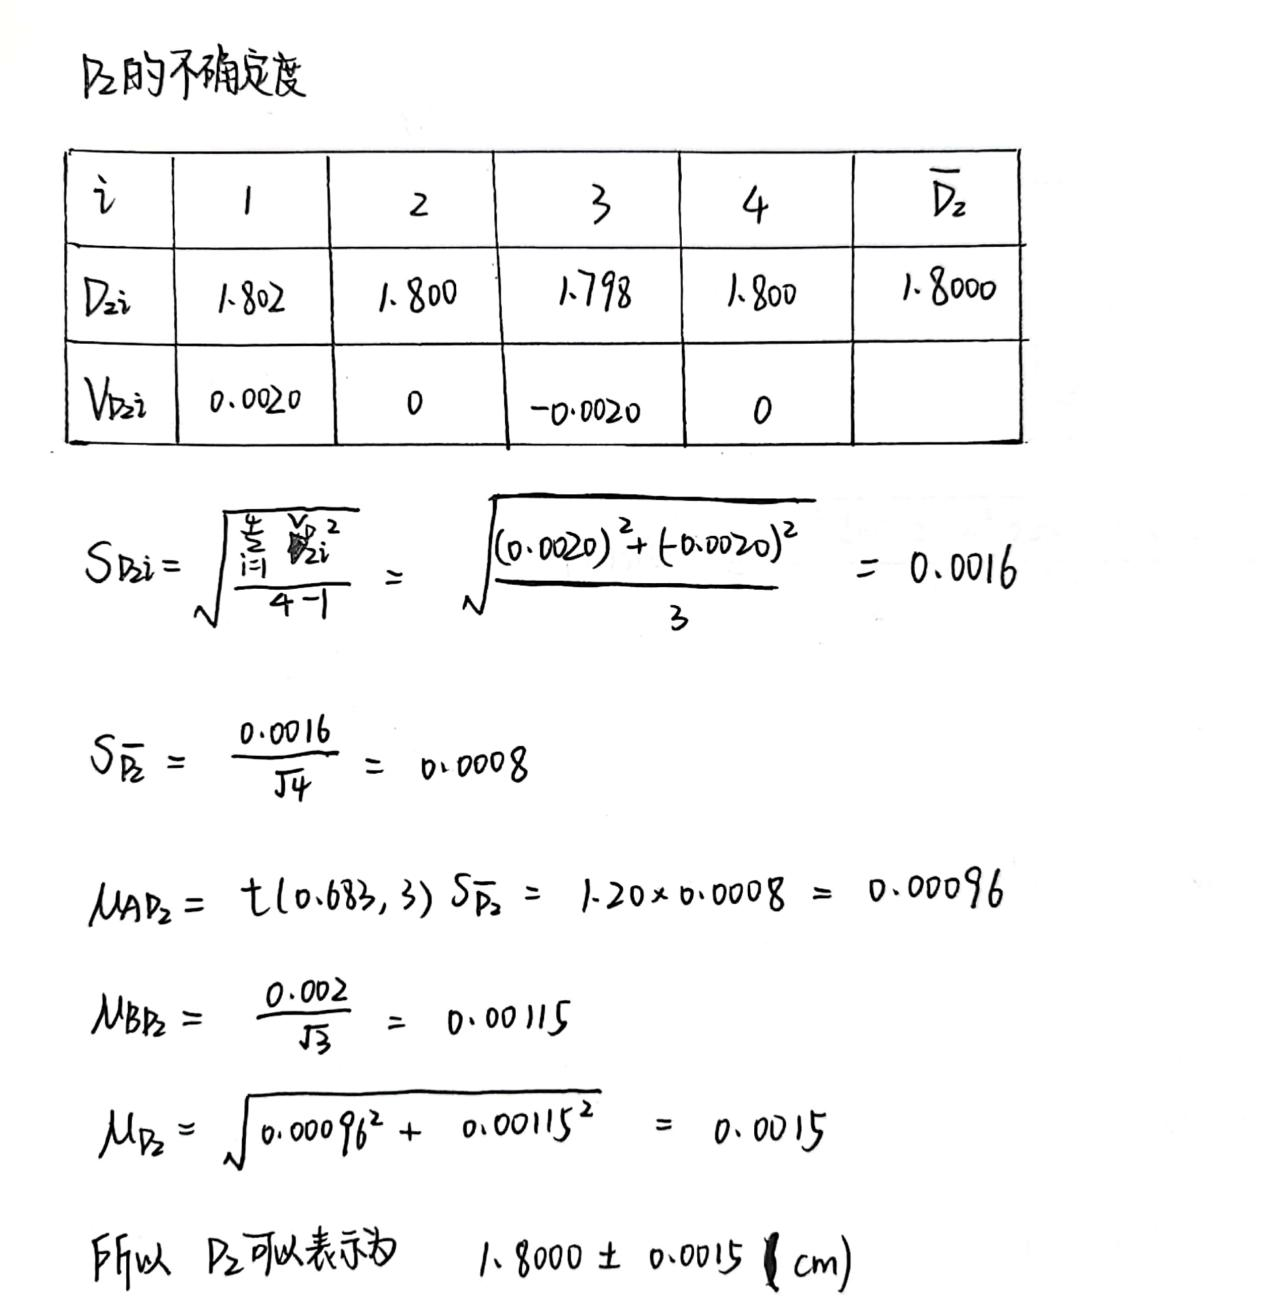 D₂的不确定度
i 1 2 3 4 D̅₂
D₂ᵢ 1.802 1.800 1.798 1.800 1.8000
V_D₂ᵢ 0.0020 0 -0.0020 0
S_D₂ᵢ = √(∑_{i=1}^{4} V_D₂ᵢ² / (4-1)) = √(((0.0020)² + (-0.0020)²) / 3) = 0.0016
S_D̅₂ = 0.0016/√4 = 0.0008
μ_AD₂ = t(0.683, 3) S_D̅₂ = 1.20 × 0.0008 = 0.00096
μ_BD₂ = 0.002/√3 = 0.00115
μ_D₂ = √(0.00096² + 0.00115²) = 0.0015
所以 D₂可以表示为 1.8000 ± 0.0015 (cm)